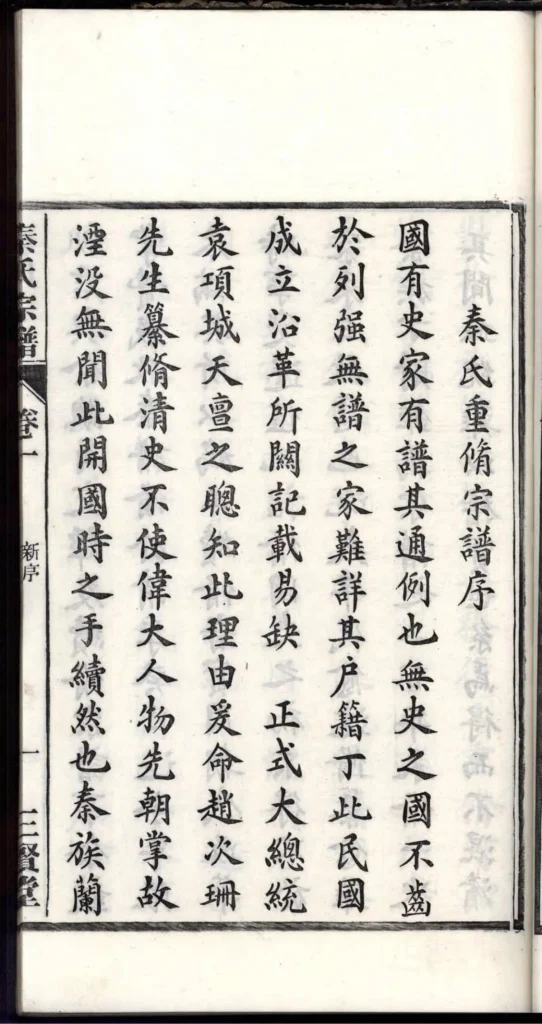 秦氏重脩宗譜序
國有史家有譜其通例也無史之國不齒
於列强無譜之家難詳其户籍丁此民國
成立沿革所關記載易缺　正式大總統
袁項城天亶之聰知此理由爰命趙次珊
先生纂脩清史不使偉大人物先朝掌故
湮没無聞此開國時之手續然也秦族蘭
秦氏宗譜　卷一　新序　一　三賢堂